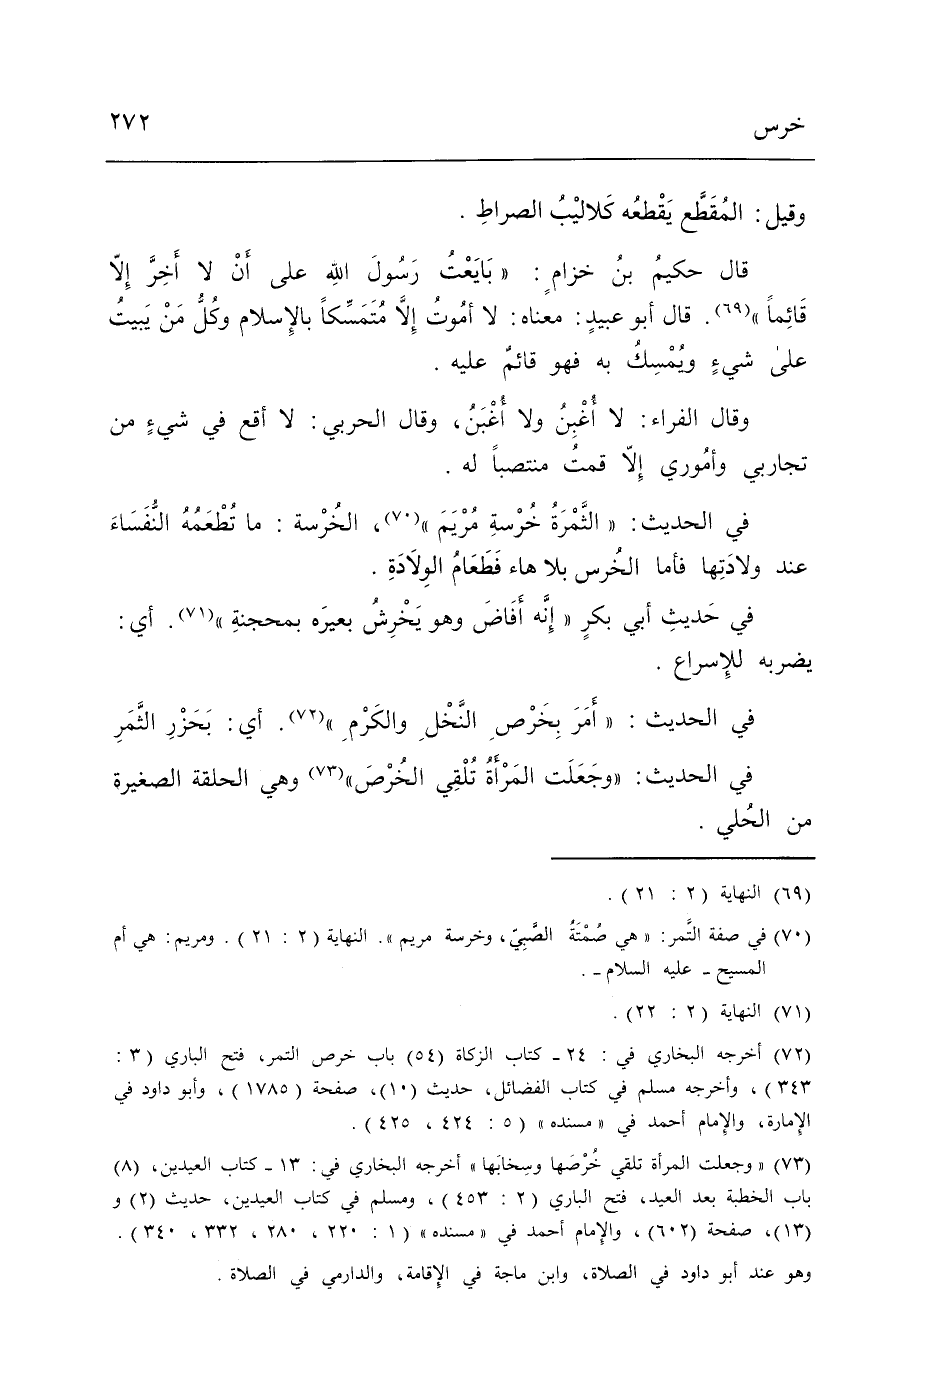 خرس ٢٧٢
وقيل : المُقَطَّع يَقْطعُه كَلاليْبُ الصراطِ .
قال حكيمُ بنُ خزامٍ : « بَايَعْتُ رَسُولَ اللهِ على أَنْ لا أَخِرَّ إلاّ
قَائِماً »(٦٩). قال أبو عبيدٍ : معناه : لا أمُوتُ إِلَّا مُتَمَسِّكاً بالإِسلام وكُلُّ مَنْ يَبيتُ
علىٰ شيءٍ ويُمْسِكُ به فهو قائمٌ عليه .
وقال الفراء : لا أُغْبِنُ ولا أُغْبَنُ ، وقال الحربي : لا أقع في شيءٍ من
تجاربي وأمُوري إلاّ قمتُ منتصباً له .
في الحديث : « الثَّمْرَةُ خُرْسةِ مُرْيَمَ »(٧٠)، الخُرْسة : ما تُطْعَمُهُ النُّفَسَاءَ
عند ولادَتِها فأما الخُرس بلا هاء فَطَعَامُ الوِلَادَةِ .
في حَديثِ أبي بكرٍ « إِنَّه أَفَاضَ وهو يَخْرِشُ بعيرَه بمحجنةِ »(٧١). أي :
يضربه للإِسراع .
في الحديث : « أَمَرَ بِخَرْصِ النَّخْلِ والكَرْمِ »(٧٢). أي : بَحَزْرِ الثَّمَرِ
في الحديث : «وجَعَلَت المَرْأَةُ تُلْقِي الخُرْصَ»(٧٣) وهي الحلقة الصغيرة
من الحُلي .
(٦٩) النهاية ( ٢ : ٢١ ) .
(٧٠) في صفة التَّمر : « هي صُمْتَةُ الصَّبِيّ ، وخرسة مريم ». النهاية ( ٢ : ٢١ ) . ومريم : هي أم
المسيح - عليه السلام - .
(٧١) النهاية ( ٢ : ٢٢) .
(٧٢) أخرجه البخاري في : ٢٤ - كتاب الزكاة (٥٤) باب خرص التمر، فتح الباري ( ٣ :
٣٤٣ ) ، وأخرجه مسلم في كتاب الفضائل، حديث (١٠)، صفحة ( ١٧٨٥ ) ، وأبو داود في
الإمارة، والإمام أحمد في « مسنده » ( ٥ : ٤٢٤ ، ٤٢٥ ) .
(٧٣) « وجعلت المرأة تلقي خُرْصَها وسِخابَها » أخرجه البخاري في : ١٣ - كتاب العيدين، (٨)
باب الخطبة بعد العيد، فتح الباري ( ٢ : ٤٥٣ ) ، ومسلم في كتاب العيدين، حديث (٢) و
(١٣)، صفحة (٦٠٢) ، والإمام أحمد في « مسنده » ( ١ : ٢٢٠ ، ٢٨٠ ، ٣٣٢ ، ٣٤٠ ) .
وهو عند أبو داود في الصلاة، وابن ماجة في الإقامة، والدارمي في الصلاة .